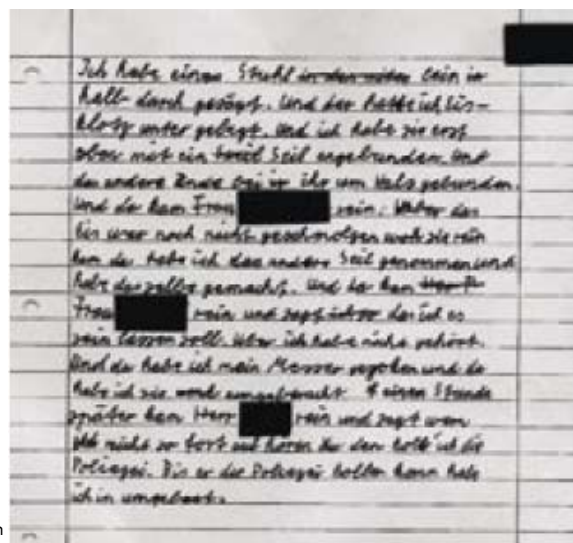 Ich habe einen Stuhl in der mitte bein in
halb durch gesägt. Und der hatte ich Eis-
klotz unter gelegt. Und ich habe sie erst
ober mit ein Seil angebunden. Und
das andere Ende bei ir ihr um Hals gebunden.
Und da kam Frau rein. Aber das
Eis war noch nicht geschmolzen wo sie rein
kam da habe ich das andere Seil genommen und
habe das selbe gemacht. Und da kam Herr
Frau rein und sagt das ich es
sein lassen soll. Aber ich habe nicht gehört.
Und da habe ich mein Messer gezoken und da
habe ich sie umgebracht. einen Stunde
später kam Herr rein und sagt wen
nicht so fort auf hören du den holl ich die
Polizei. Bis er die Polizei hollen kann habe
ich in umgebart.